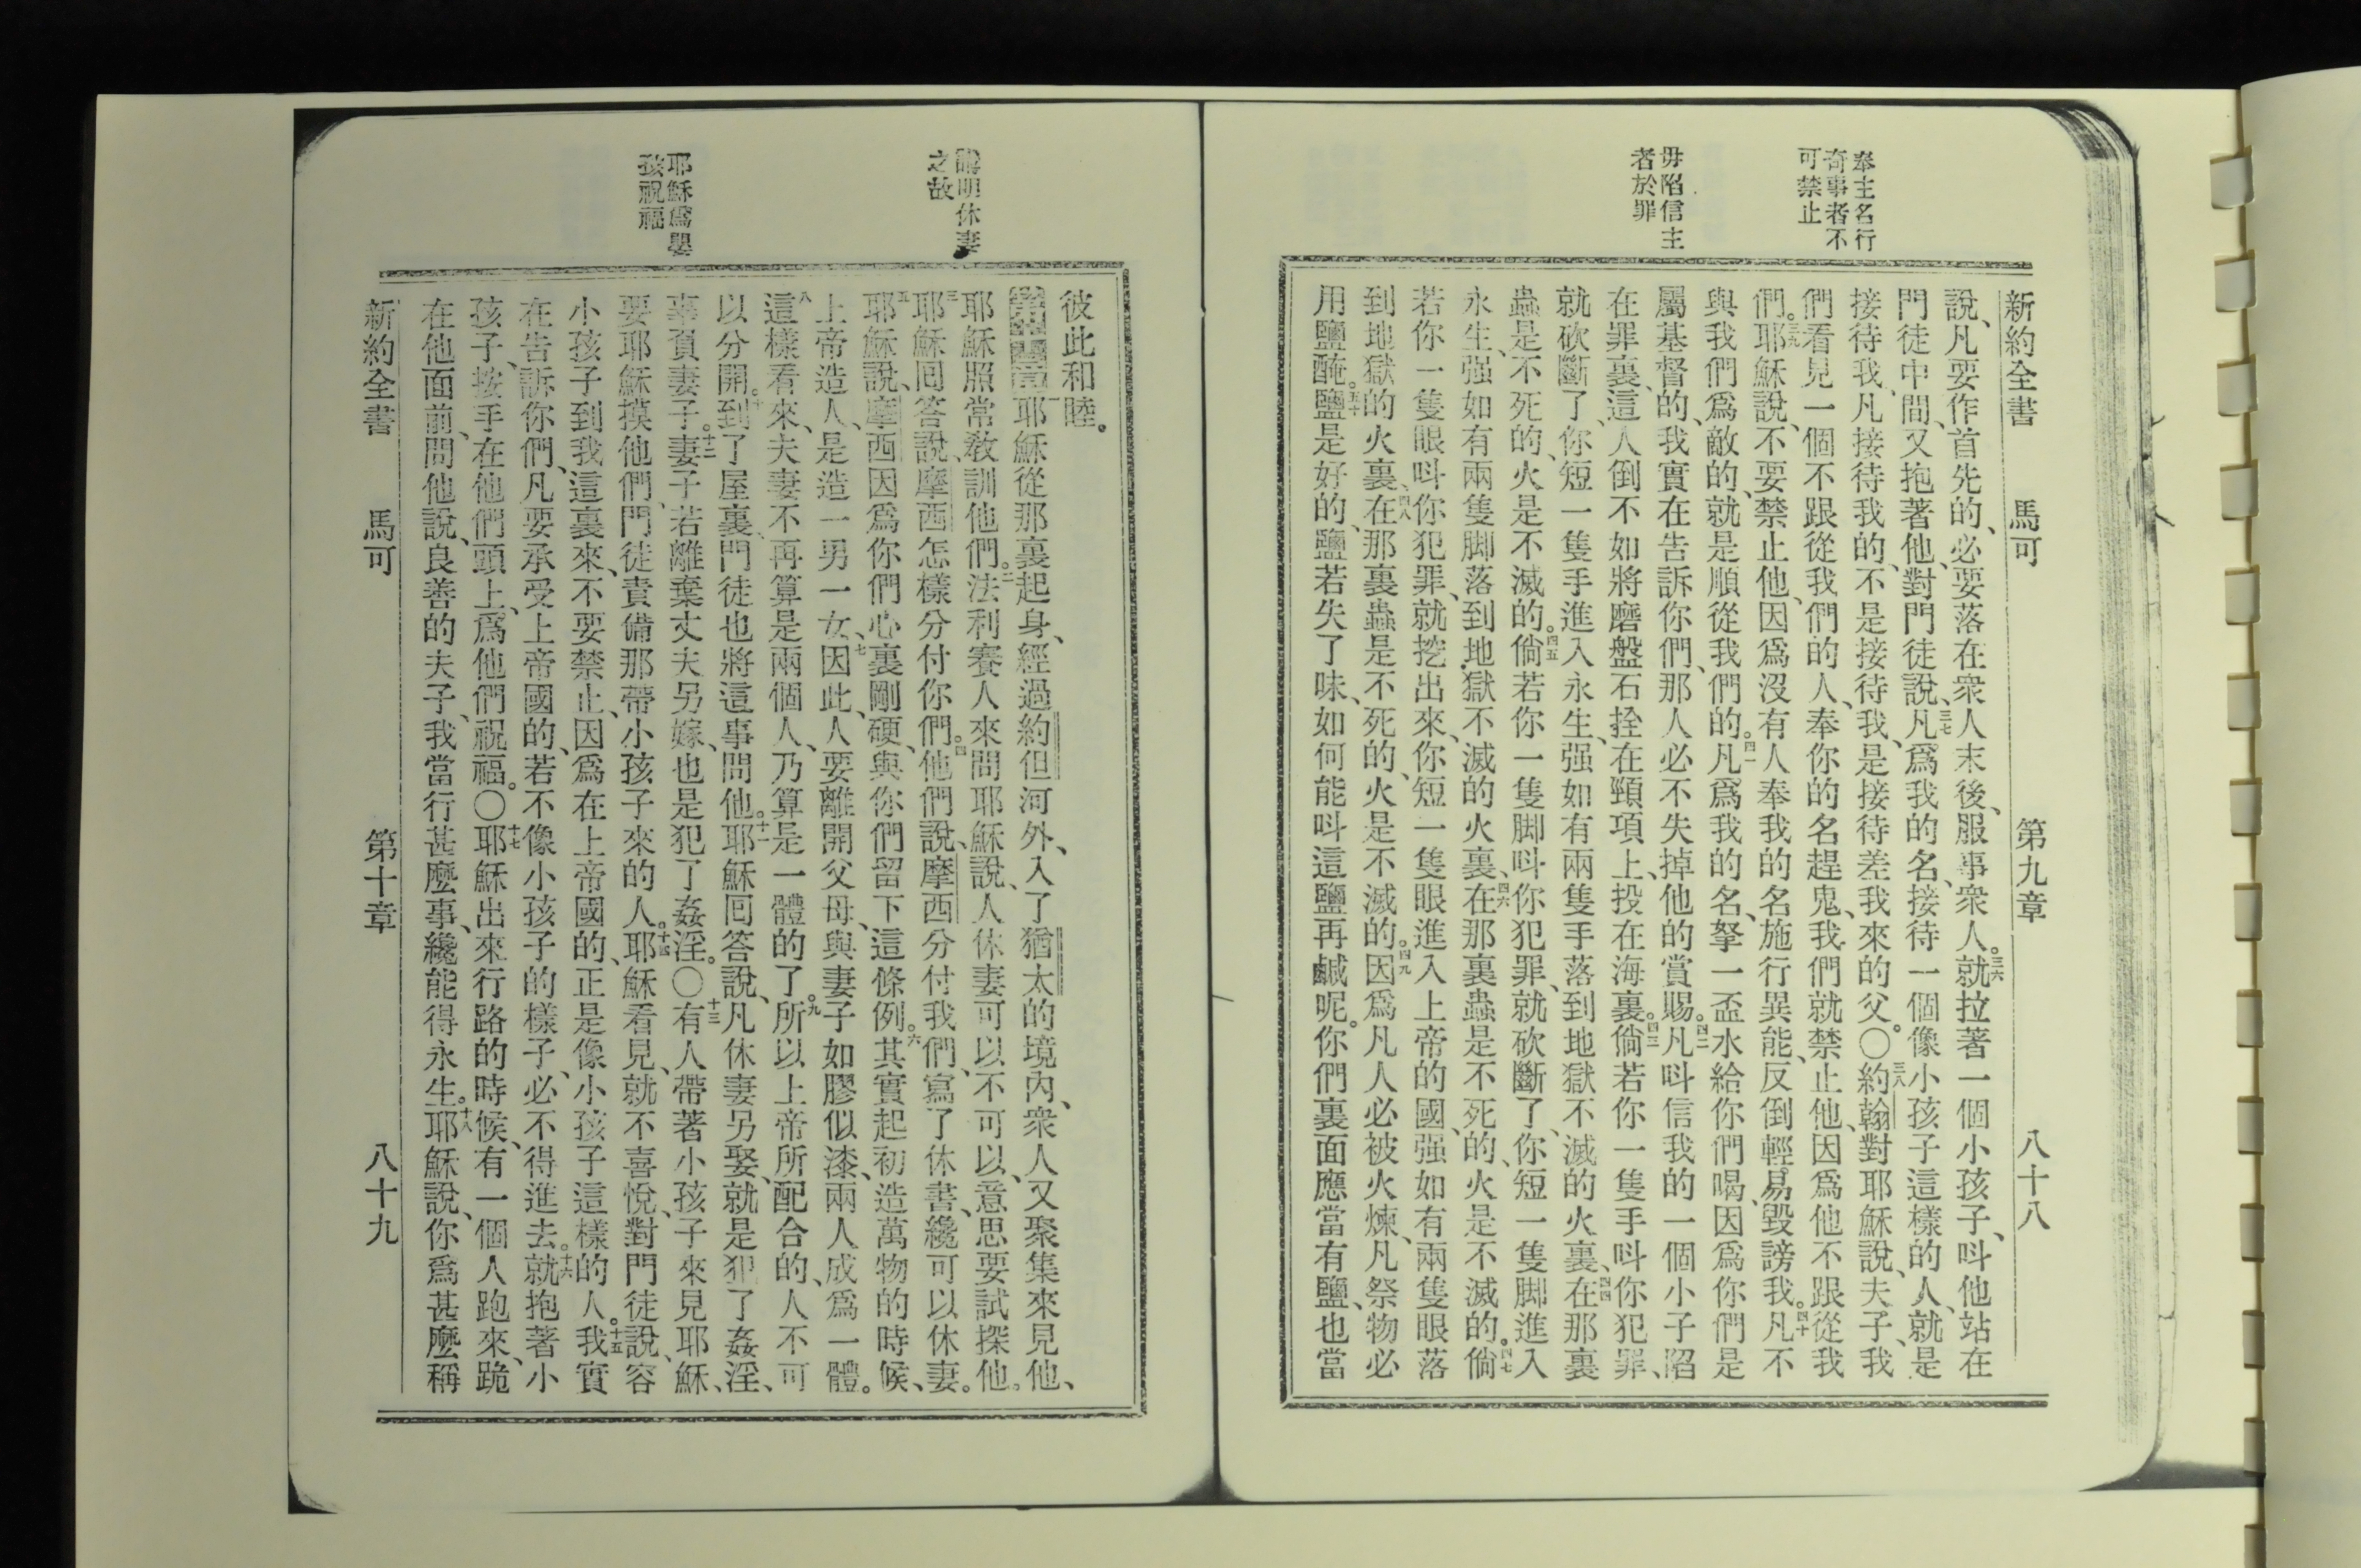 新約全書　馬可　第九章　八十八
奉主名行
奇事者不
可禁止
毋陷信主
者於罪
說、凡要作首先的、必要落在衆人末後、服事衆人。三六就拉著一個小孩子、呌他站在
門徒中間、又抱著他、對門徒說、三七凡爲我的名、接待一個像小孩子這樣的人、就是
接待我、凡接待我的、不是接待我、是接待差我來的父。〇三八約翰對耶穌說、夫子、我
們看見一個不跟從我們的人、奉你的名趕鬼、我們就禁止他、因爲他不跟從我
們。三九耶穌說、不要禁止他、因爲沒有人奉我的名施行異能、反倒輕易毀謗我。四十凡不
與我們爲敵的、就是順從我們的。四一凡爲我的名、拏一盃水給你們喝、因爲你們是
屬基督的、我實在告訴你們、那人必不失掉他的賞賜。四二凡呌信我的一個小子陷
在罪裏、這人倒不如將磨盤石拴在頸項上、投在海裏。四三倘若你一隻手呌你犯罪、
就砍斷了、你短一隻手進入永生、强如有兩隻手落到地獄不滅的火裏、四四在那裏
蟲是不死的、火是不滅的。四五倘若你一隻脚呌你犯罪、就砍斷了、你短一隻脚進入
永生、强如有兩隻脚落到地獄不滅的火裏、四六在那裏蟲是不死的、火是不滅的。四七倘
若你一隻眼呌你犯罪、就挖出來、你短一隻眼進入上帝的國、强如有兩隻眼落
到地獄的火裏、四八在那裏蟲是不死的、火是不滅的。四九因爲凡人必被火煉、凡祭物必
用鹽醃。五十鹽是好的、鹽若失了味、如何能呌這鹽再鹹呢。你們裏面應當有鹽、也當
彼此和睦。
講明休妻
之故
耶穌爲嬰
孩祝福
第十章一耶穌從那裏起身、經過約但河外、入了猶太的境內、衆人又聚集來見他、
耶穌照常教訓他們。二法利賽人來問耶穌說、人休妻可以不可以、意思要試探他。
三耶穌囘答說、摩西怎樣分付你們。四他們說、摩西分付我們、寫了休書、纔可以休妻。
五耶穌說、摩西因爲你們心裏剛硬、與你們留下這條例。六其實起初造萬物的時候、
上帝造人、是造一男一女、七因此、人要離開父母、與妻子如膠似漆、兩人成爲一體。
八這樣看來、夫妻不再算是兩個人、乃算是一體的了。九所以上帝所配合的、人不可
以分開。十到了屋裏、門徒也將這事問他。十一耶穌囘答說、凡休妻另娶、就是犯了姦淫、
辜負妻子。十二妻子若離棄丈夫另嫁、也是犯了姦淫。〇十三有人帶著小孩子來見耶穌、
要耶穌摸他們、門徒責備那帶小孩子來的人。十四耶穌看見、就不喜悅、對門徒說、容
小孩子到我這裏來、不要禁止、因爲在上帝國的、正是像小孩子這樣的人。十五我實
在告訴你們、凡要承受上帝國的、若不像小孩子的樣子、必不得進去。十六就抱著小
孩子、按手在他們頭上、爲他們祝福。〇十七耶穌出來行路的時候、有一個人跑來、跪
在他面前、問他說、良善的夫子、我當行甚麼事、纔能得永生。十八耶穌說、你爲甚麼稱
新約全書　馬可　第十章　八十九